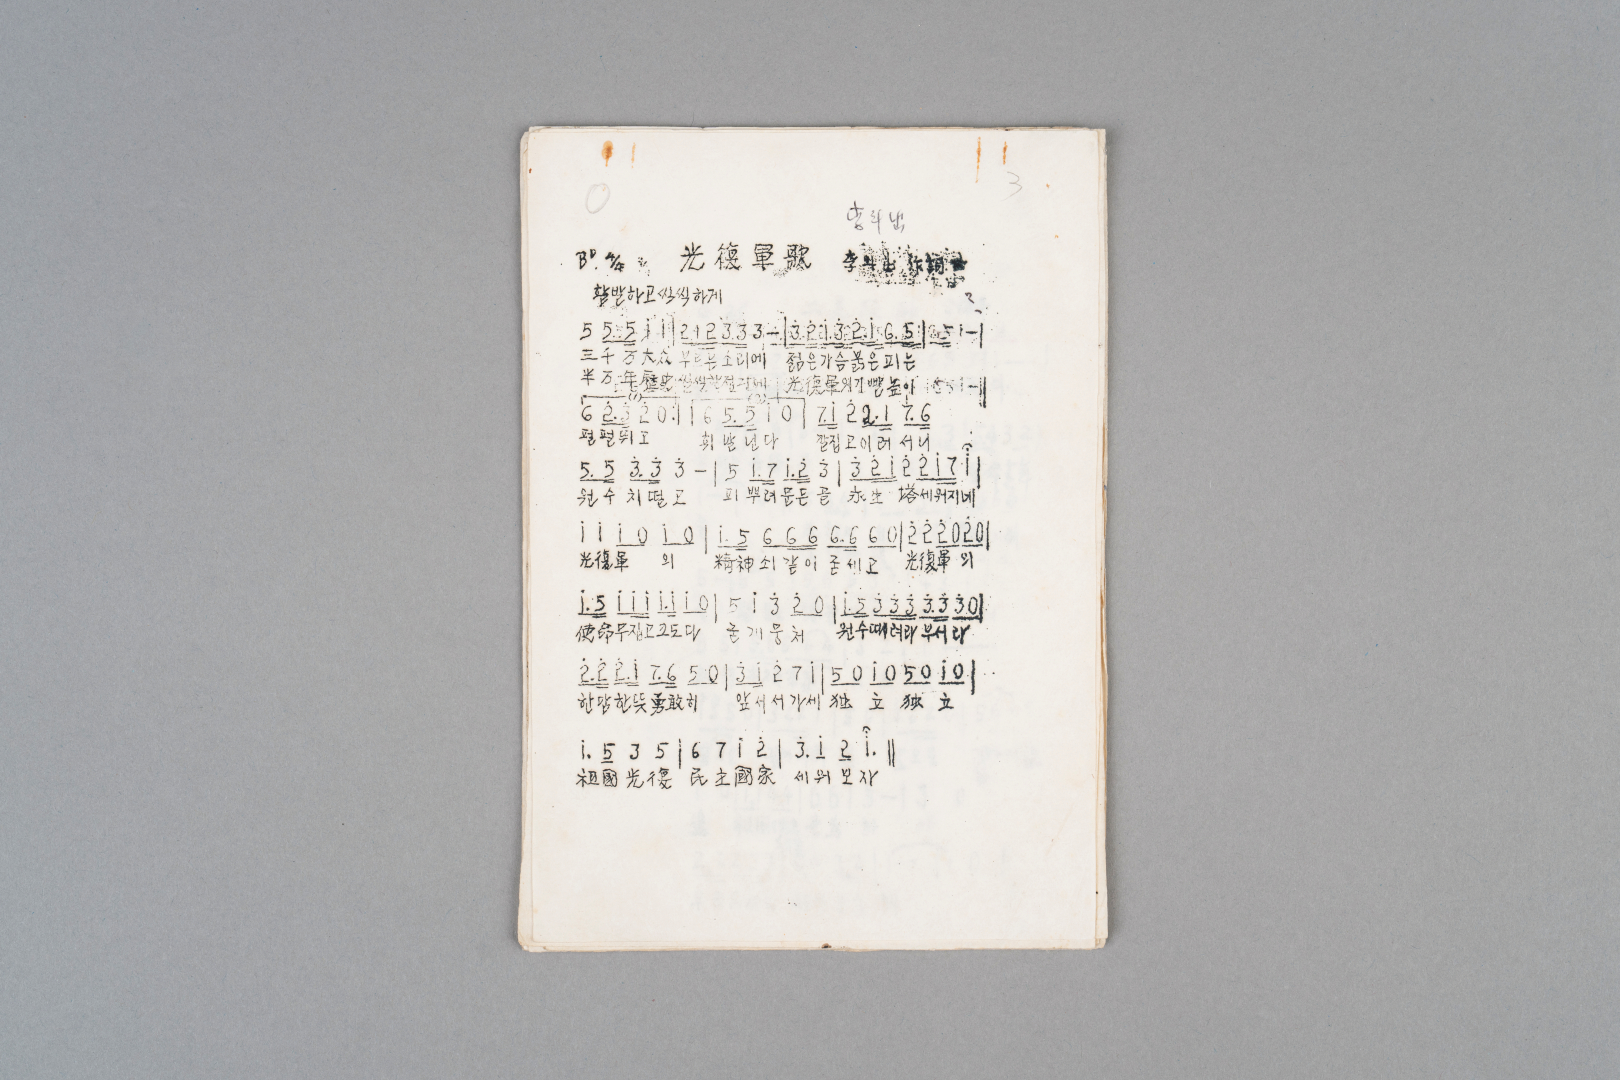 0 3
李斗出
B♭. 4/4 光復軍歌 李斗出 作詞
활발하고씩씩하게
5 5. 5 i i | 3 3 3 - | 3. 2 1. 3 2. 1 6. 5
三千万大众 부르는소리에 젊은가슴붉은피는
半万年歷史 光復軍의기빨높이
6 2. 3 2 0 : | | 6 5. 5 i 0 | 7 i 2 2. 1 7. 6
펄펄뛰고 휘날닌다 칼집고이러서니
5. 5 3. 3 3 - | 5 i. 7 i. 2 3 | 3 2 i 2 2 i 7 i |
원수치떨고 피뿌려문든골 永生塔세워지네
i i i 0 i 0 | i. 5 6 6 6 6. 6 6 0 | 2 2 2 0 2 0 |
光復軍 의 精神쇠같이굳세고 光復軍의
i. 5 i i i i. i i 0 | 5 i 3 2 0 | i. 5 3 3 3 3. 3 3 0 |
使命무겁고크도다 굳게뭉처 원수때려라부서라
2. 2 2. i 7. 6 5 0 | 3 i 2 7 i | 5 0 i 0 5 0 i 0 |
한맘한뜻勇敢히 앞서서가세 独立 独立
i. 5 3 5 | 6 7 i 2 | 3. i 2 i. ||
祖國光復 民主國家 세워보자